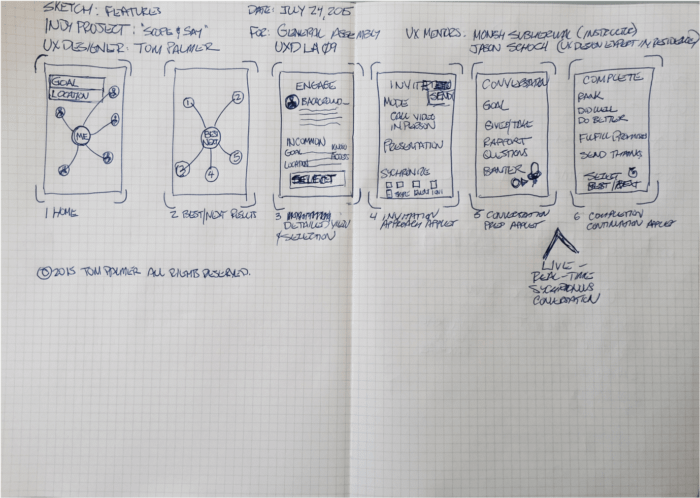 SKETCH: FEATURES
DATE: JULY 24, 2015
INDY PROJECT: "SCOPE & SAY"
FOR: GENERAL ASSEMBLY
UX MENTORS: (INSTRUCTOR)
UX DESIGNER: TOM PALMER
UXDLA09
JASON (UX DESIGN EXPERT IN RESIDENCE)
GOAL
LOCATION
ME
1 HOME
1
2
BEST
NEXT
3
4
5
2 BEST/NEXT RESULTS
ENGAGE
BACKGROUND
IN COMMON
GOAL
LOCATION
SELECT
3
DETAILED VIEW
& SELECTION
INVITE
SEND
MODE
CALL VIDEO
IN PERSON
PRESENTATION
SYCHRONIZE
DATE DURATION
4 INVITATION
APPROACH APPLET
CONVERSATION
GOAL
GIVE/TAKE
RAPPORT
QUESTIONS
BANTER
5 CONVERSATION
PREP APPLET
COMPLETE
RANK
DID WELL
DO BETTER
FULFILL PROMISES
SEND THANKS
SELECT
BEST/NEXT
6 COMPLETION
CONTINUATION APPLET
LIVE -
REAL-TIME
SYCHRONUS
CONVERSATION
© 2015 TOM PALMER ALL RIGHTS RESERVED.